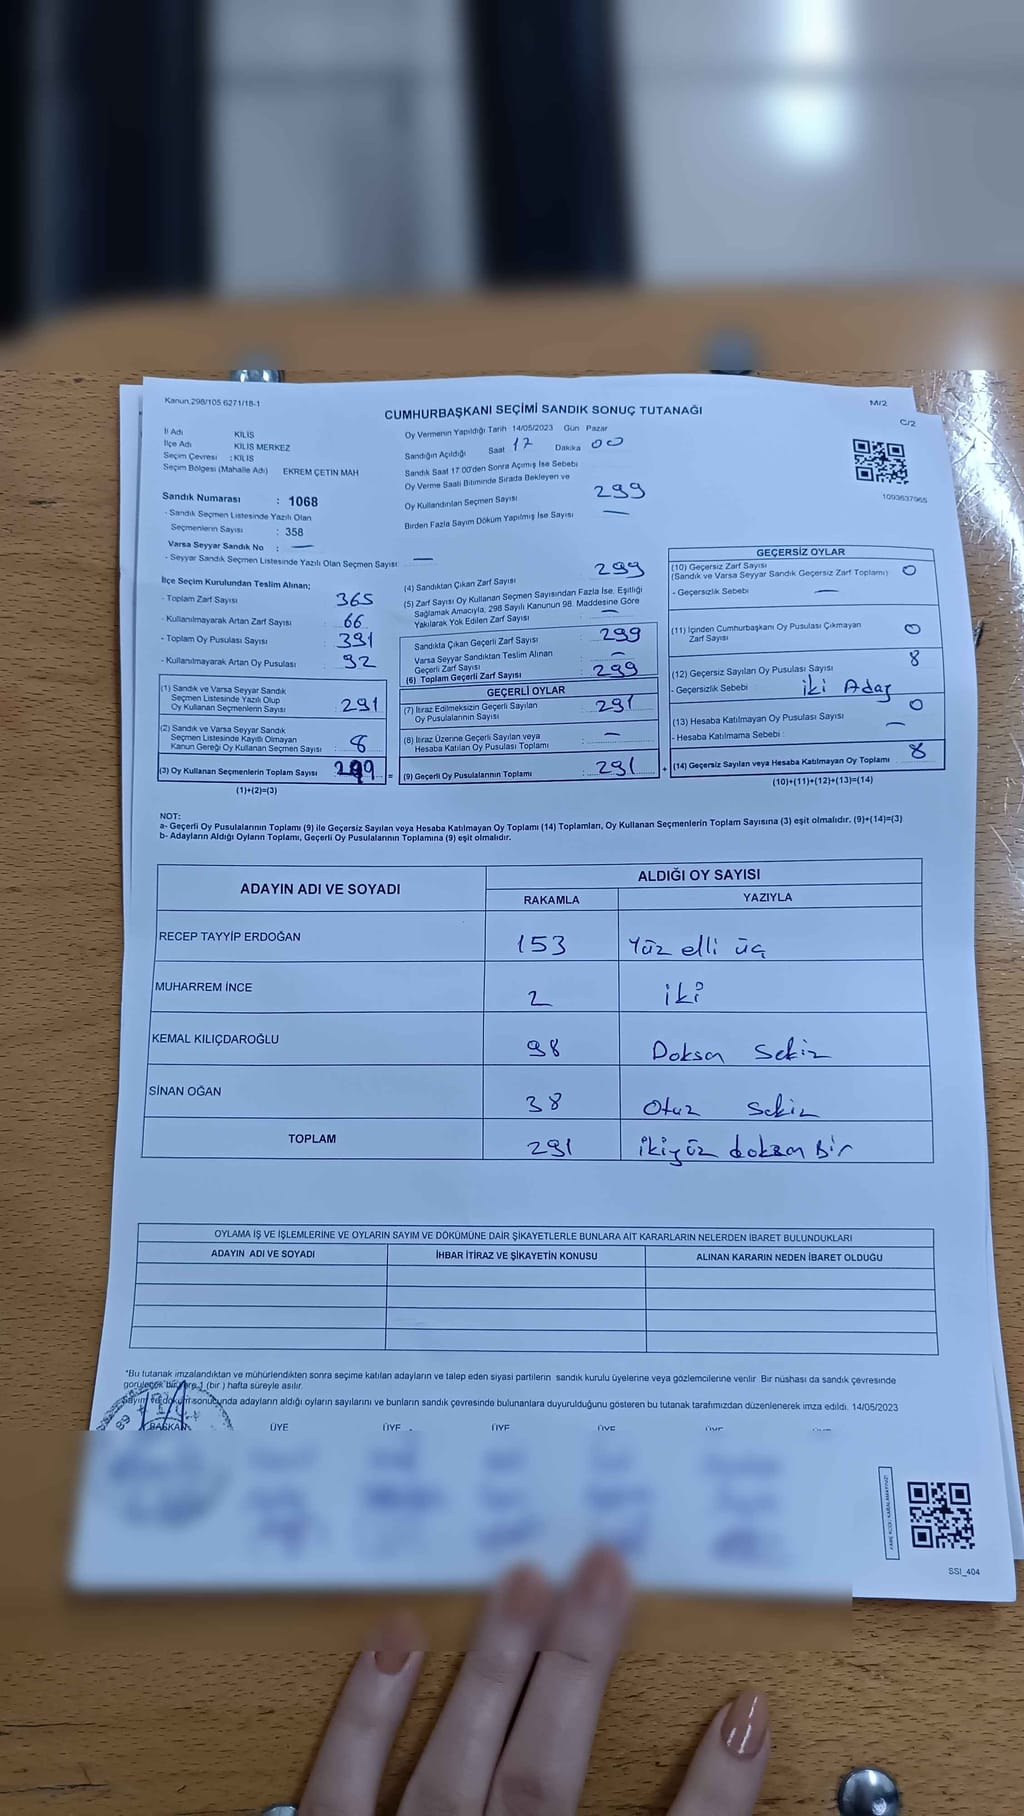 Kanun.298/105 6271/18-1
M/2
C/2
CUMHURBAŞKANI SEÇİMİ SANDIK SONUÇ TUTANAĞI
İl Adı KİLİS
İlçe Adı KİLİS MERKEZ
Seçim Çevresi : KİLİS
Seçim Bölgesi (Mahalle Adı) EKREM ÇETİN MAH
Sandık Numarası : 1068
- Sandık Seçmen Listesinde Yazılı Olan
Seçmenlerin Sayısı : 358
Varsa Seyyar Sandık No : —
- Seyyar Sandık Seçmen Listesinde Yazılı Olan Seçmen Sayısı —
Oy Vermenin Yapıldığı Tarih 14/05/2023 Gün Pazar
Sandığın Açıldığı Saat 17 Dakika 00
Sandık Saat 17 00'den Sonra Açımış İse Sebebi
Oy Verme Saati Bitiminde Sırada Bekleyen ve
Oy Kullandırılan Seçmen Sayısı 299
Birden Fazla Sayım Döküm Yapılmış İse Sayısı —
1093637965
İlçe Seçim Kurulundan Teslim Alınan;
- Toplam Zarf Sayısı 365
- Kullanılmayarak Artan Zarf Sayısı 66
- Toplam Oy Pusulası Sayısı 391
- Kullanılmayarak Artan Oy Pusulası 92
(1) Sandık ve Varsa Seyyar Sandık
Seçmen Listesinde Yazılı Olup
Oy Kullanan Seçmenlerin Sayısı : 291
(2) Sandık ve Varsa Seyyar Sandık
Seçmen Listesinde Kayıtlı Olmayan
Kanun Gereği Oy Kullanan Seçmen Sayısı : 8
(3) Oy Kullanan Seçmenlerin Toplam Sayısı : 299
(1)+(2)=(3)
(4) Sandıktan Çıkan Zarf Sayısı 299
(5) Zarf Sayısı Oy Kullanan Seçmen Sayısından Fazla İse, Eşitliği
Sağlamak Amacıyla, 298 Sayılı Kanunun 98. Maddesine Göre
Yakılarak Yok Edilen Zarf Sayısı : —
Sandıkta Çıkan Geçerli Zarf Sayısı 299
Varsa Seyyar Sandıktan Teslim Alınan
Geçerli Zarf Sayısı —
(6) Toplam Geçerli Zarf Sayısı 299
GEÇERLİ OYLAR
(7) İtiraz Edilmeksizin Geçerli Sayılan
Oy Pusulalarının Sayısı : 291
(8) İtiraz Üzerine Geçerli Sayılan veya
Hesaba Katılan Oy Pusulası Toplamı : —
(9) Geçerli Oy Pusulalarının Toplamı : 291
GEÇERSİZ OYLAR
(10) Geçersiz Zarf Sayısı
(Sandık ve Varsa Seyyar Sandık Geçersiz Zarf Toplamı) 0
- Geçersizlik Sebebi —
(11) İçinden Cumhurbaşkanı Oy Pusulası Çıkmayan
Zarf Sayısı 0
(12) Geçersiz Sayılan Oy Pusulası Sayısı 8
- Geçersizlik Sebebi : iki Aday
(13) Hesaba Katılmayan Oy Pusulası Sayısı 0
- Hesaba Katılmama Sebebi : —
(14) Geçersiz Sayılan veya Hesaba Katılmayan Oy Toplamı : 8
(10)+(11)+(12)+(13)=(14)
NOT:
a- Geçerli Oy Pusulalarının Toplamı (9) ile Geçersiz Sayılan veya Hesaba Katılmayan Oy Toplamı (14) Toplamları, Oy Kullanan Seçmenlerin Toplam Sayısına (3) eşit olmalıdır. (9)+(14)=(3)
b- Adayların Aldığı Oyların Toplamı, Geçerli Oy Pusulalarının Toplamına (9) eşit olmalıdır.
ADAYIN ADI VE SOYADI ALDIĞI OY SAYISI
RAKAMLA YAZIYLA
RECEP TAYYİP ERDOĞAN 153 Yüz elli üç
MUHARREM İNCE 2 iki
KEMAL KILIÇDAROĞLU 98 Doksan Sekiz
SİNAN OĞAN 38 Otuz Sekiz
TOPLAM 291 ikiyüz doksan Bir
OYLAMA İŞ VE İŞLEMLERİNE VE OYLARIN SAYIM VE DÖKÜMÜNE DAİR ŞİKAYETLERLE BUNLARA AİT KARARLARIN NELERDEN İBARET BULUNDUKLARI
ADAYIN ADI VE SOYADI İHBAR İTİRAZ VE ŞİKAYETİN KONUSU ALINAN KARARIN NEDEN İBARET OLDUĞU
*Bu tutanak imzalandıktan ve mühürlendikten sonra seçime katılan adayların ve talep eden siyasi partilerin sandık kurulu üyelerine veya gözlemcilerine verilir Bir nüshası da sandık çevresinde
görülecek bir yere 1 (bir ) hafta süreyle asılır.
Sayım ve döküm sonucunda adayların aldığı oyların sayılarını ve bunların sandık çevresinde bulunanlara duyurulduğunu gösteren bu tutanak tarafımızdan düzenlenerek imza edildi. 14/05/2023
BAŞKAN ÜYE ÜYE ÜYE ÜYE ÜYE
SSI_404